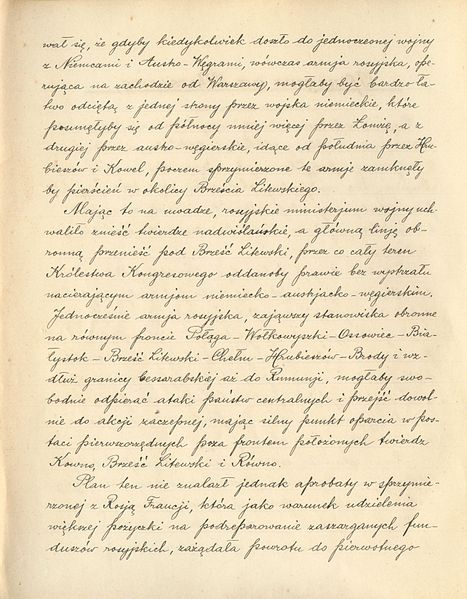 wał się, że gdyby kiedykolwiek doszło do jednoczesnej wojny
z Niemcami i Austro-Węgrami, wówczas armja rosyjska, ope-
rująca na zachodzie od Warszawy, mogłaby być bardzo ła-
two odciętą z jednej strony przez wojska niemieckie, które
posunęłyby się od północy mniej więcej przez Łomżę, a z
drugiej przez austro-węgierskie, idące od południa przez Hru-
bieszów i Kowel, poczem sprzymierzone te armje zamknęły
by pierścień w okolicy Brześcia Litewskiego.
Mając to na uwadze, rosyjskie ministerjum wojny uch-
waliło znieść twierdze nadwiślańskie, a główną linję ob-
ronną przenieść pod Brześć Litewski, przez co cały teren
Królestwa Kongresowego oddanoby prawie bez wystrzału
nacierającym armjom niemiecko-austrjacko-węgierskim.
Jednocześnie armja rosyjska, zająwszy stanowiska obronne
na równym froncie Połąga-Wołkowyszki-Ossowiec-Bia-
łystok-Brześć Litewski-Chełm-Hrubieszów-Brody i wz-
dłuż granicy Bessarabskiej aż do Rumunji, mogłaby swo-
bodnie odpierać ataki państw centralnych i przejść dowol-
nie do akcji zaczepnej, mając silny punkt oparcia w pos-
taci pierwszorzędnych poza frontem położonych twierdz
Kowno, Brześć Litewski i Równo.
Plan ten nie znalazł jednak aprobaty w sprzymie-
rzonej z Rosją Francji, która jako warunek udzielenia
większej pożyczki na podreparowanie zaszarganych fun-
duszów rosyjskich, zażądała powrotu do pierwotnego